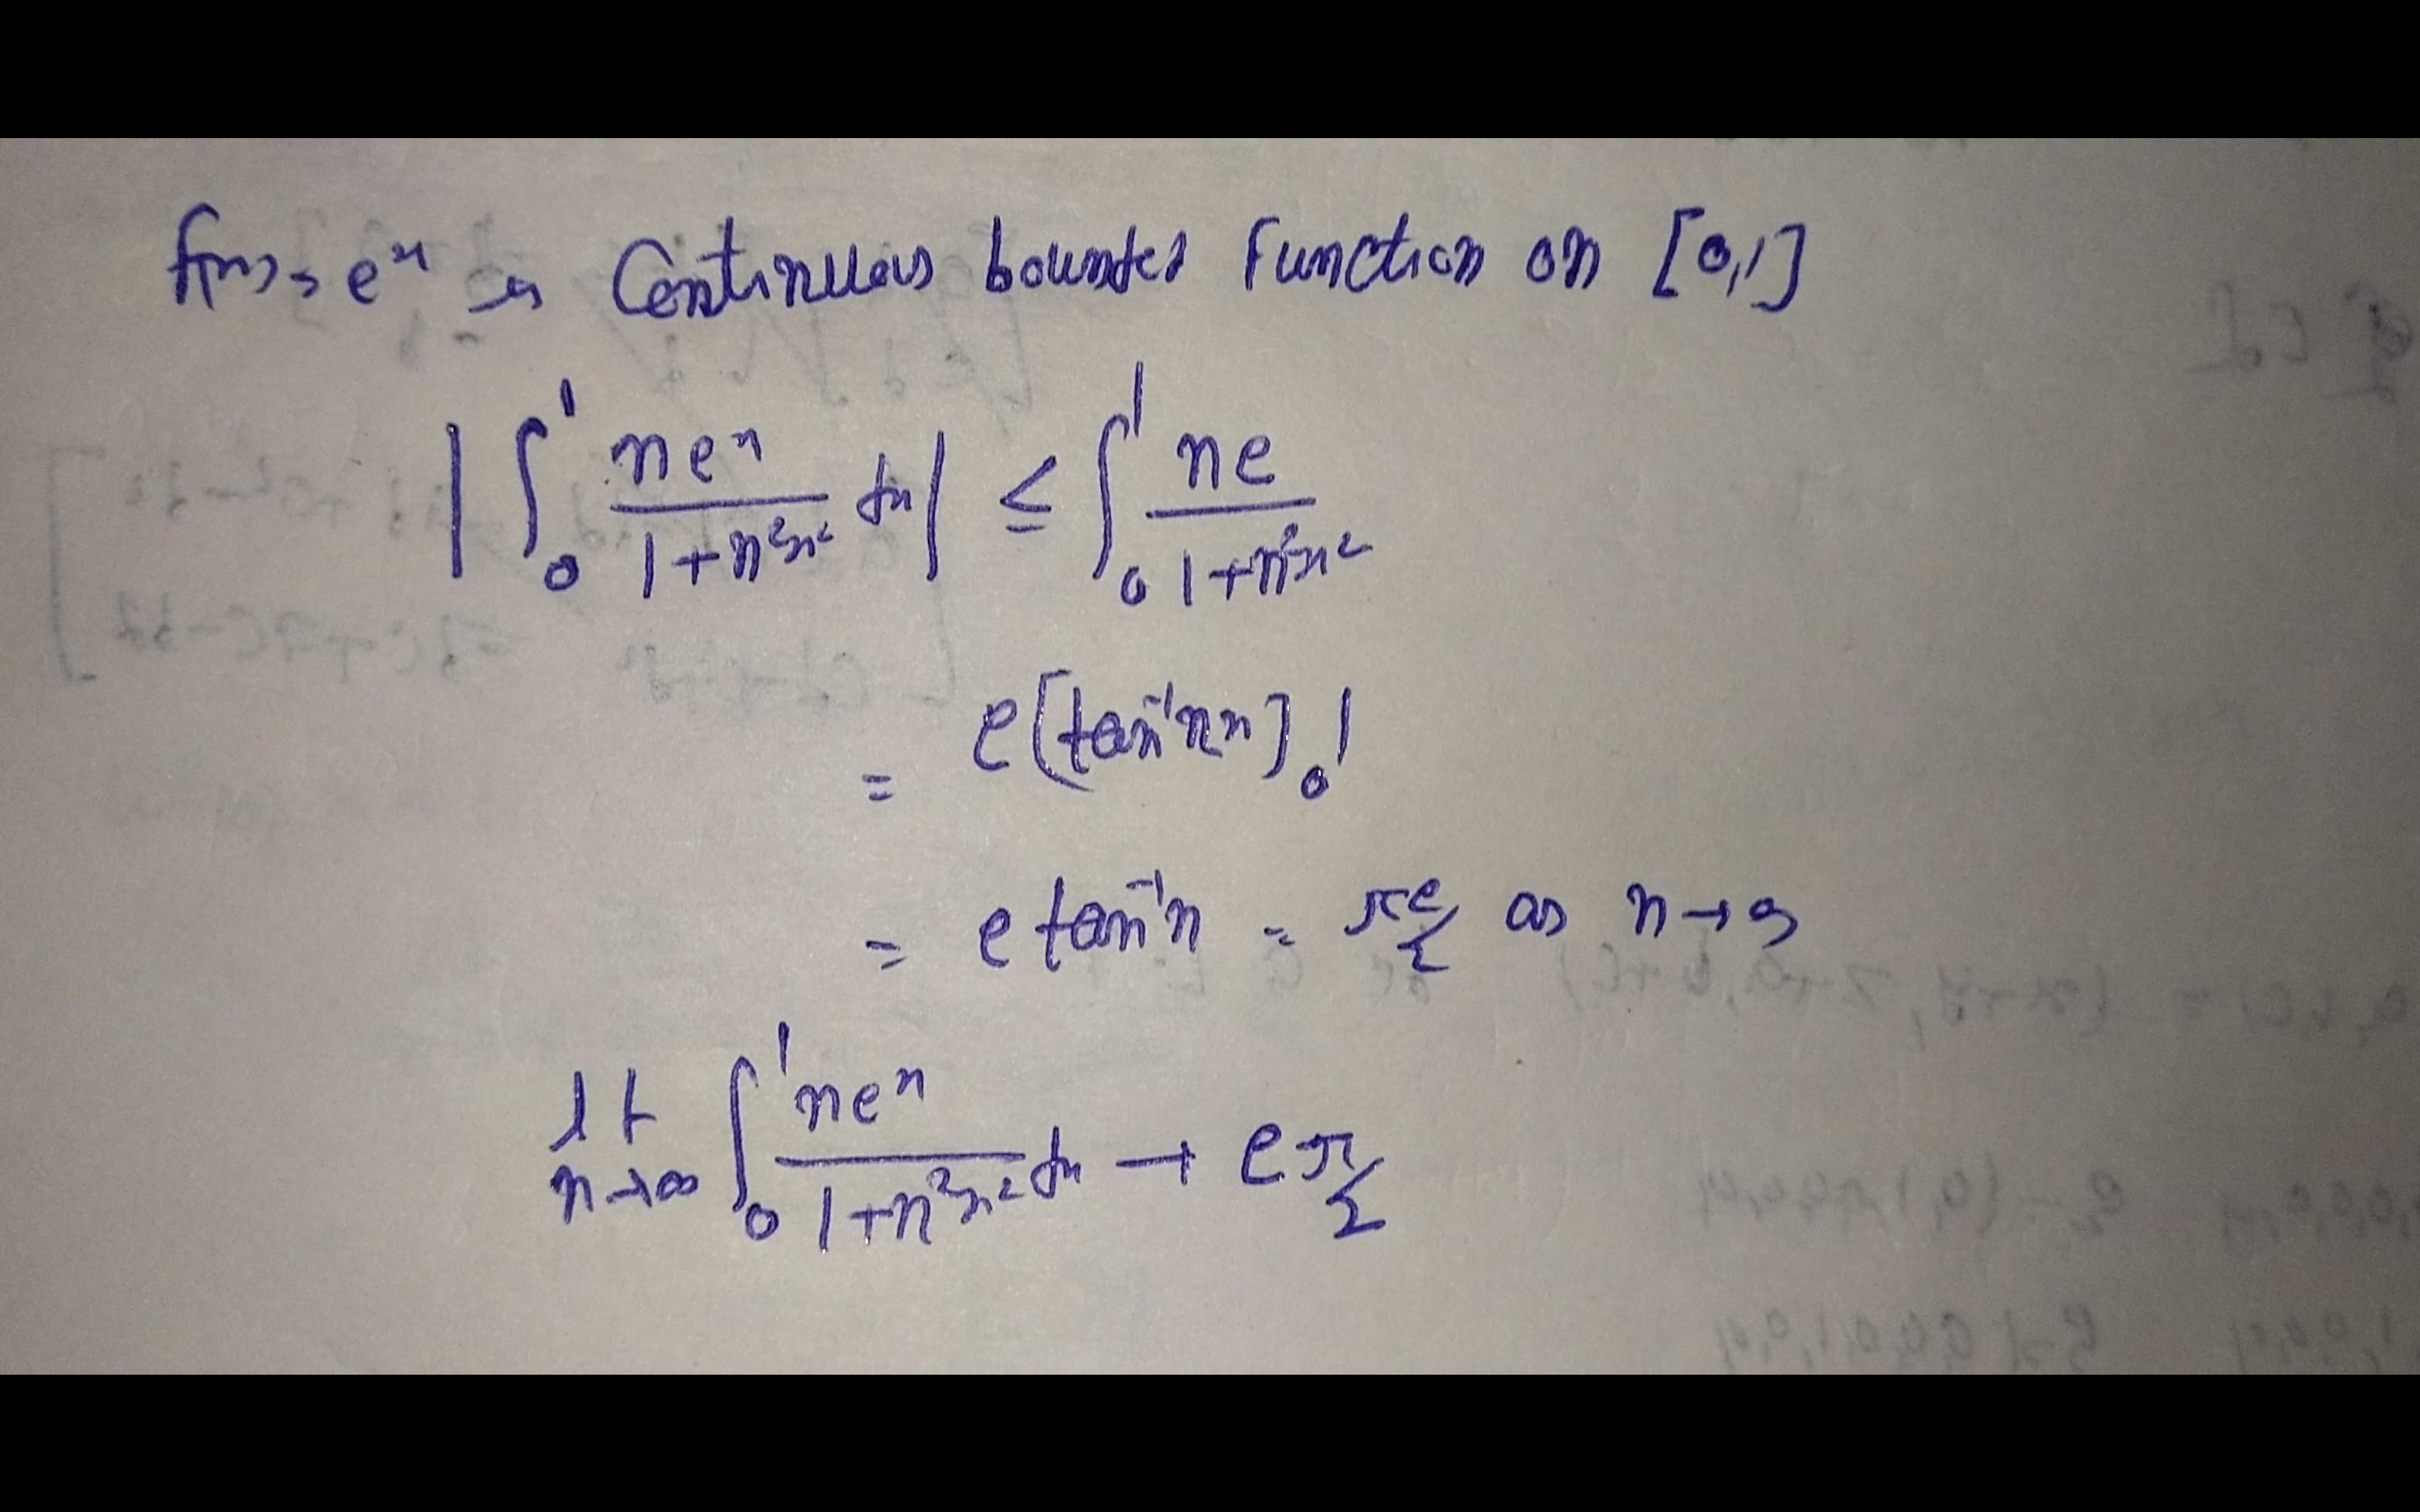 f(x) = e^x is Continuous bounded Function on [0,1]
|∫₀¹ ne^x / 1+n²x² dx| ≤ ∫₀¹ ne / 1+n²x²
= e[tan⁻¹nx]₀¹
= e tan⁻¹n = πe/2 as n→∞
lt n→∞ ∫₀¹ ne^x / 1+n²x² dx → eπ/2